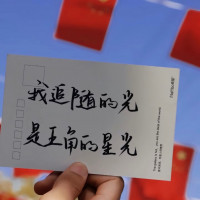 我追随的光
是五角的星光